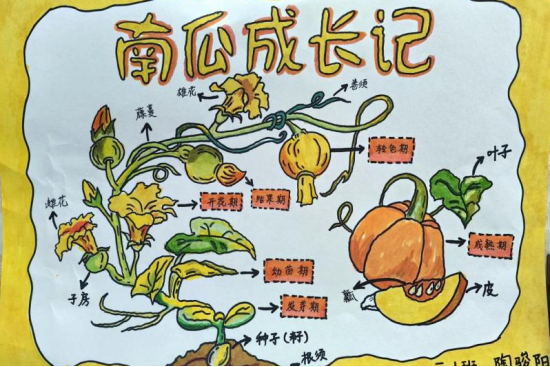 南瓜成长记
雄花
卷须
藤蔓
转色期
叶子
雌花
开花期
结果期
成熟期
子房
幼苗期
瓤
皮
发芽期
种子(籽)
根须
陶骏阳